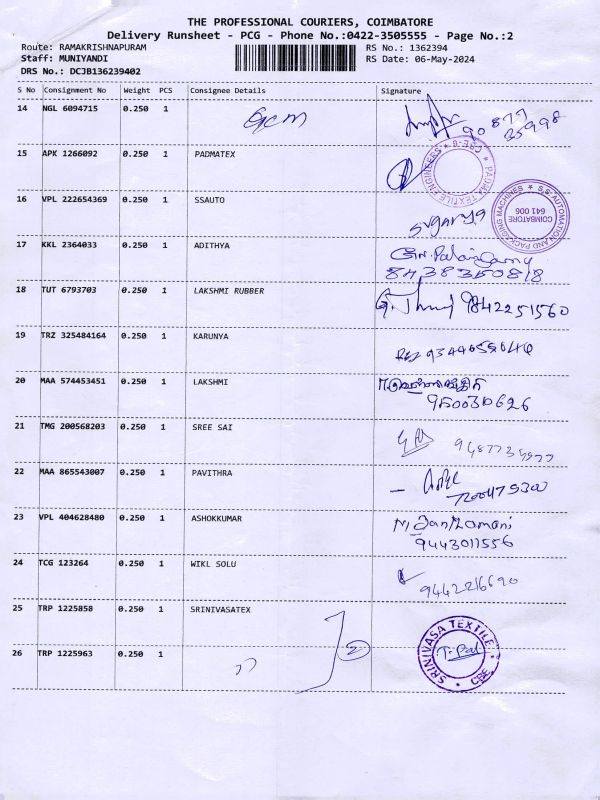 THE PROFESSIONAL COURIERS, COIMBATORE
Delivery Runsheet - PCG - Phone No.:0422-3505555 - Page No.:2
Route: RAMAKRISHNAPURAM RS No.: 1362394
Staff: MUNIYANDI RS Date: 06-May-2024
DRS No.: DCJB136239402
S No Consignment No Weight PCS Consignee Details Signature
14 NGL 6094715 0.250 1
15 APK 1266092 0.250 1 PADMATEX
PADMA TEXTILE ENGINEERS CBE-6
16 VPL 222654369 0.250 1 SSAUTO
S.S. AUTOMATION AND PACKAGING MACHINES
COIMBATORE
641 006
17 KKL 2364033 0.250 1 ADITHYA
18 TUT 6793703 0.250 1 LAKSHMI RUBBER
9842251560
19 TRZ 325484164 0.250 1 KARUNYA
20 MAA 574453451 0.250 1 LAKSHMI
21 TMG 200568203 0.250 1 SREE SAI
22 MAA 865543007 0.250 1 PAVITHRA
23 VPL 404628480 0.250 1 ASHOKKUMAR
9443011556
24 TCG 123264 0.250 1 WIKL SOLU
9442216690
25 TRP 1225858 0.250 1 SRINIVASATEX
2
SRINIVASA TEXTILE CBE
T. Pal
26 TRP 1225963 0.250 1